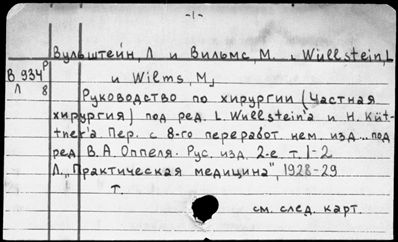 -1-
Вульштейн, Л и Вильмс, М. Wullstein, L
В 934 Р и Wilms, M
Л 8 Руководство по хирургии (Частная
хирургия) под ред. L. Wullstein'a и H. Küt-
tner'a. Пер. с 8-го переработ. нем. изд.. под
ред. В.А. Оппеля. Рус. изд. 2-е. т. 1-2
Л. „Практическая медицина", 1928-29
т.
см. след. карт.